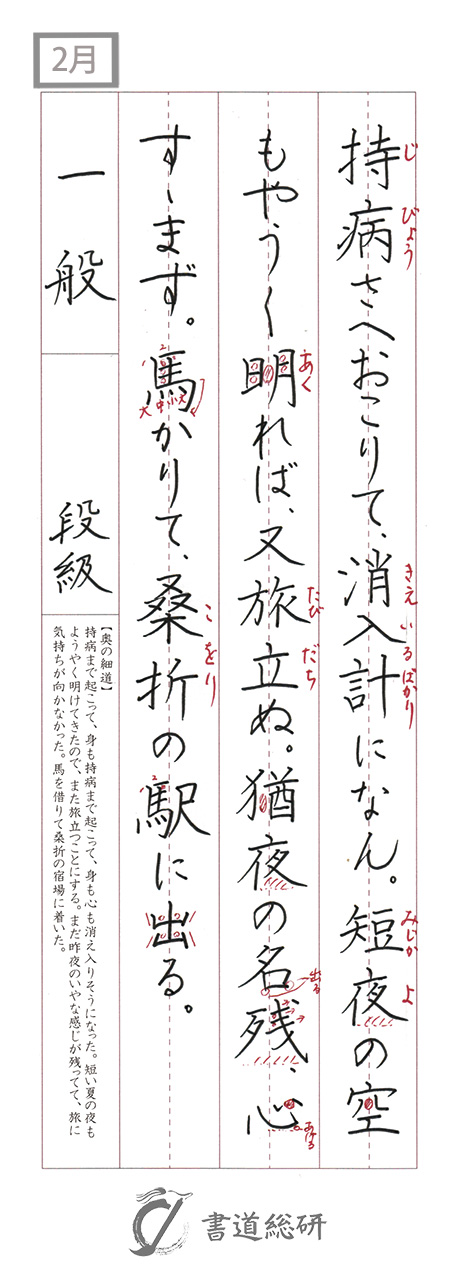 2月
持病さへおこりて、消入計になん。短夜の空
じ びょう きえ いる ばかり みじか よ
もやうく明れば、又旅立ぬ。猶夜の名残、心
あく たび だち 出る あける
すゝまず。馬かりて、桑折の駅に出る。
2 大 中 小 大 こ をり 2
一般 段級
【奥の細道】
持病まで起こって、身も持病まで起こって、身も心も消え入りそうになった。短い夏の夜も
ようやく明けてきたので、また旅立つことにする。まだ昨夜のいやな感じが残ってて、旅に
気持ちが向かなかった。馬を借りて桑折の宿場に着いた。
書道総研